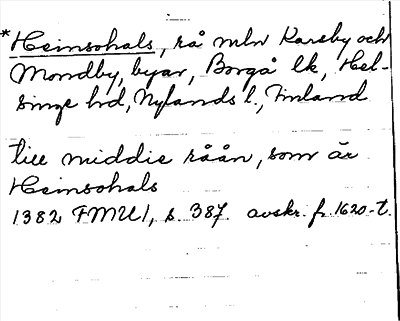 *Heinsohals, rå mln Karsby och
Mondby, byar, Borgå lk, Hel-
singe hd, Nylands l., Finland
till middie råån, som är
Heinsohals
1382 FMU I, s. 387. avskr. fr. 1620-t.